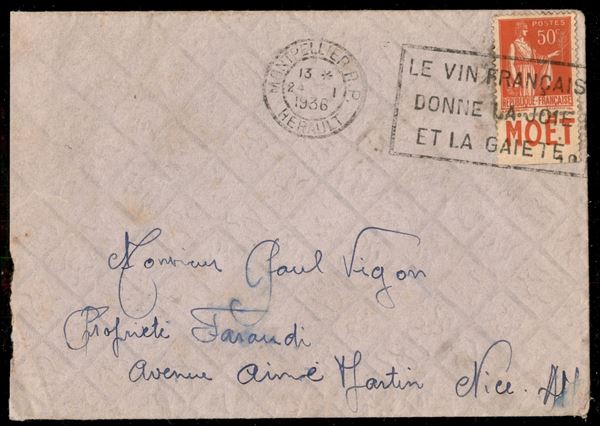 MONTPELLIER R.P.
13 *
24 - 1
1936
HERAULT
POSTES
50c
REPUBLIQUE-FRANÇAISE
MOËT
LE VIN FRANÇAIS
DONNE LA JOIE
ET LA GAIETE
Monsieur Paul Vigon
Propriété Faraudi
Avenue Aimé Martin Nice. AM